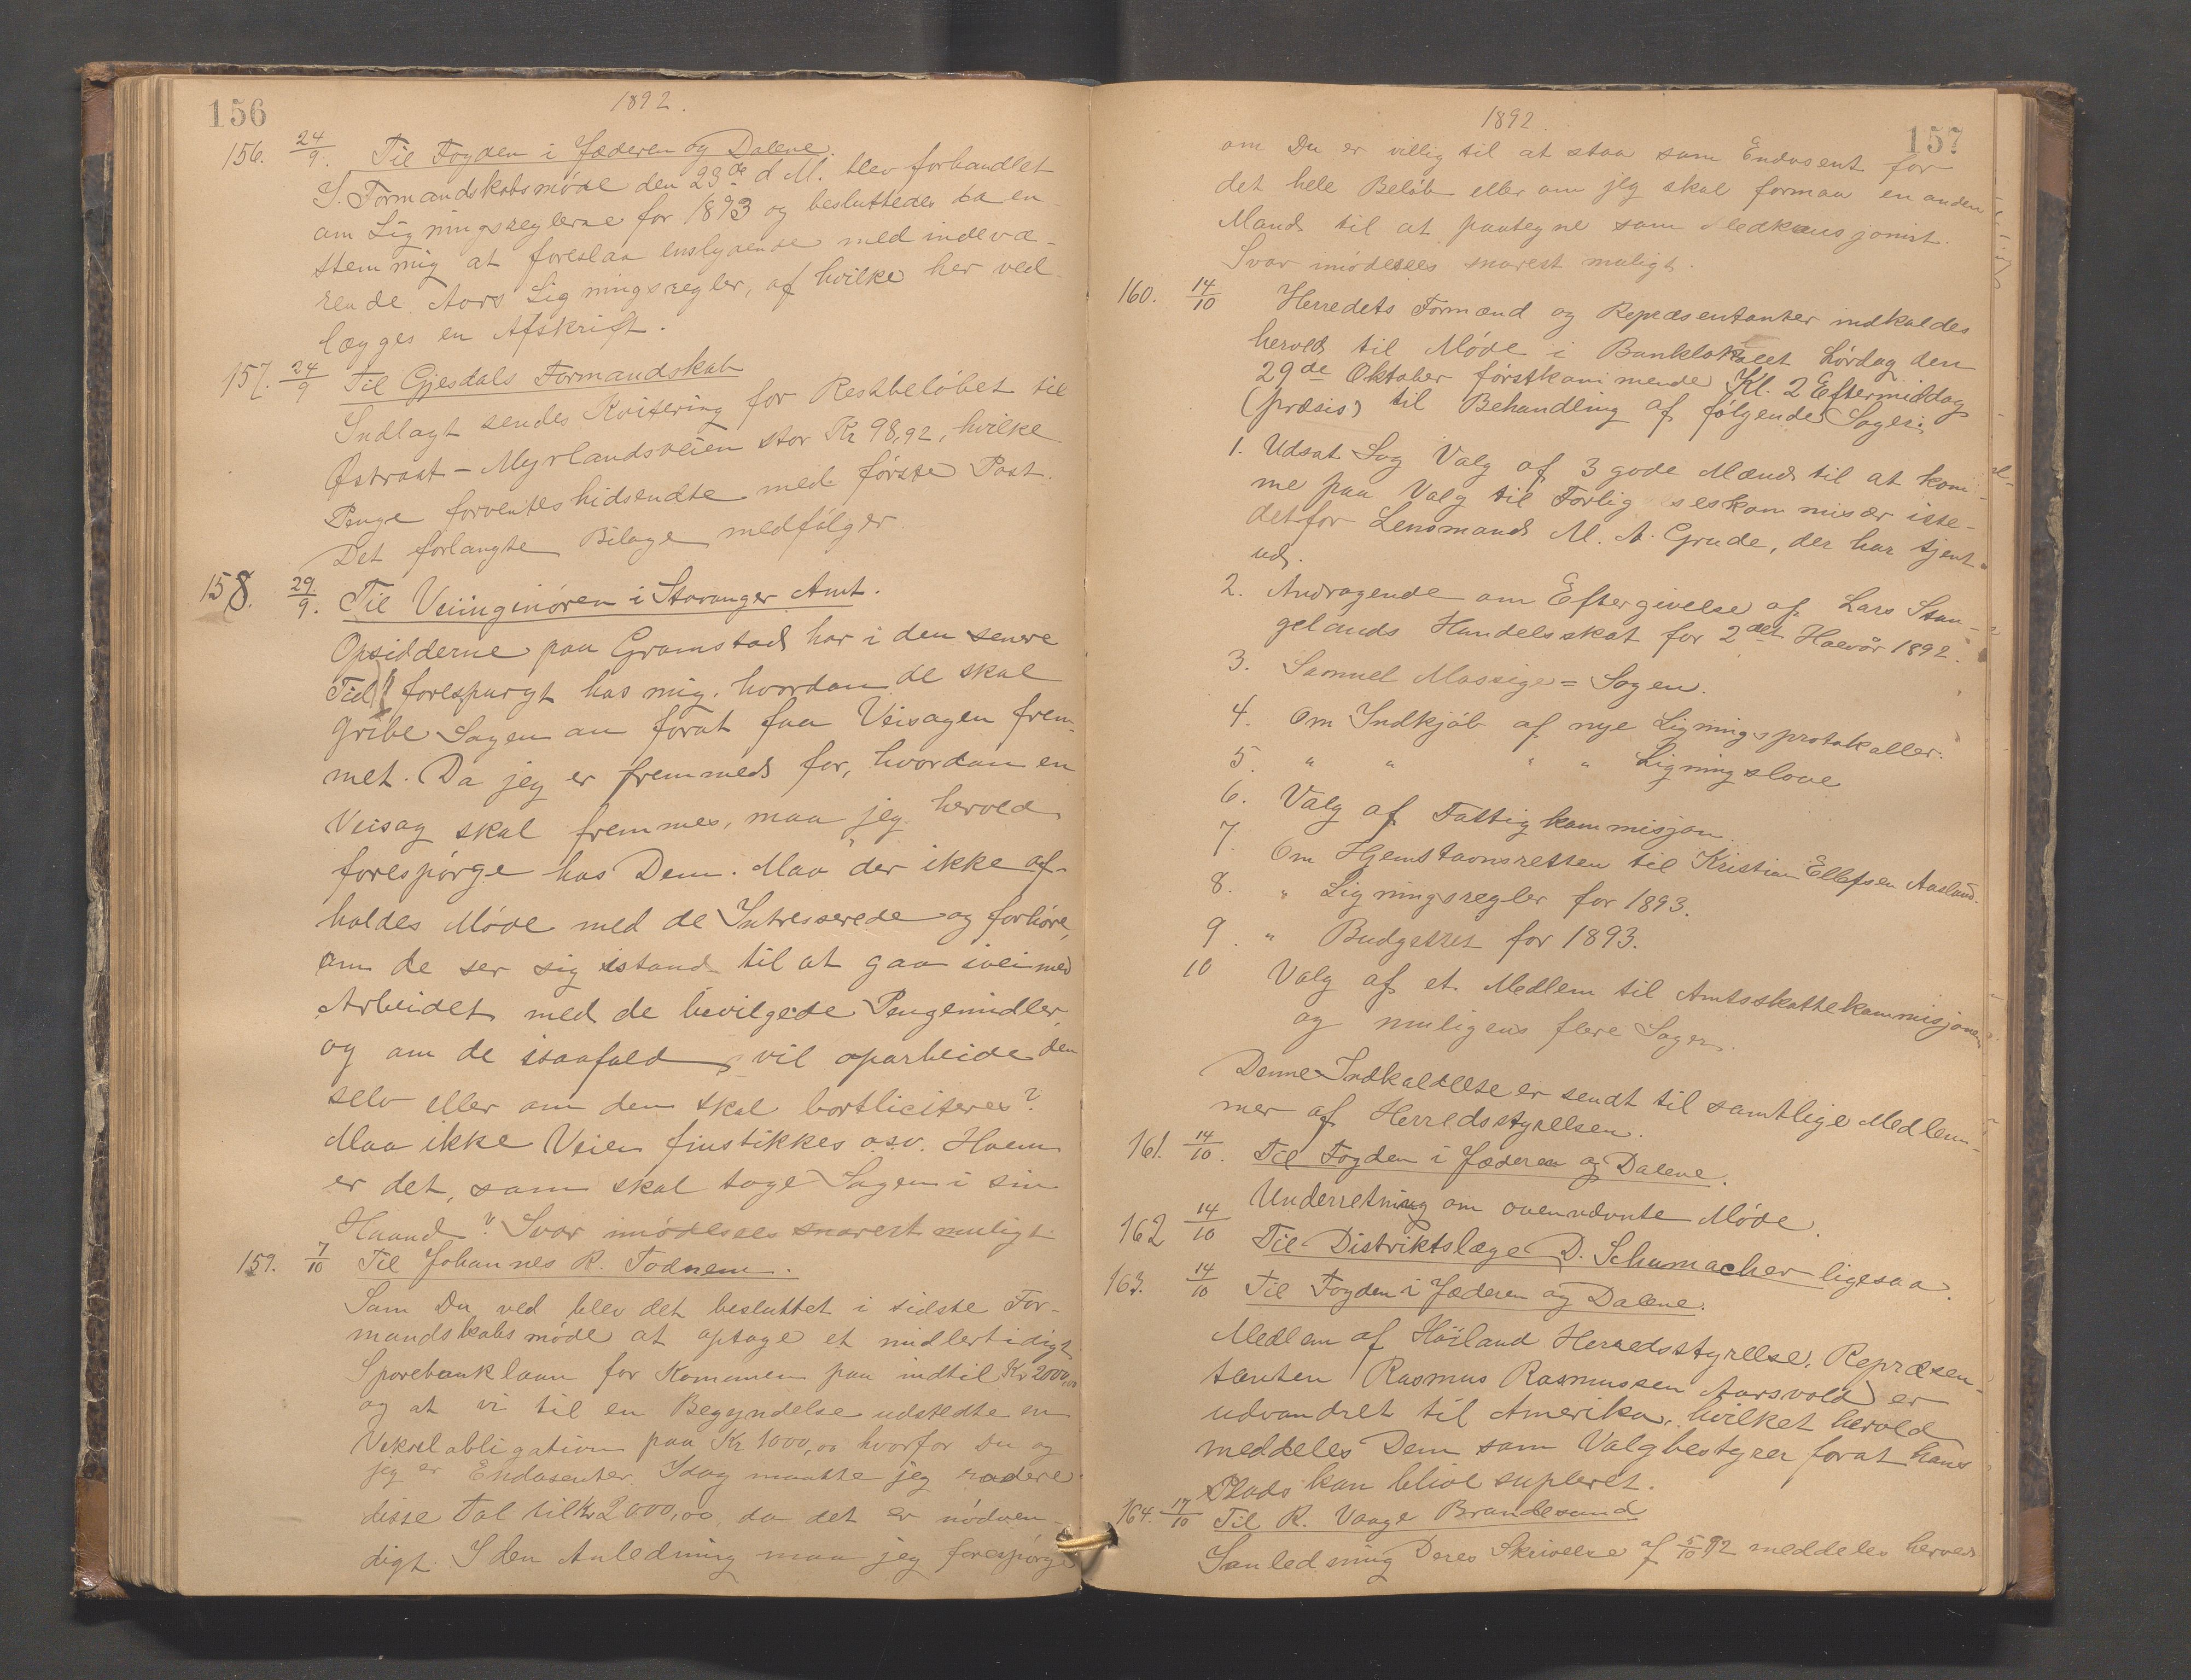 156
1892.
156. 24/9. Til Fogden i Jæderen og Dalene.
I Formandskabsmøde den 23de d. M. blev forhandlet
om Ligningsreglerne for 1893 og besluttedes da en-
stemmig at foreslaa enslydende med indevæ-
rende Aars Ligningsregler, af hvilke her ved-
lægges en Afskrift.
157. 24/9 Til Gjesdals Formandskab
Indlagt sendes Kvitering for Restbeløbet til
Østraat-Myrlandsveien stor Kr 98,92, hvilke
Penge forventes hidsendte med første Post.
Det forlangte Bilage medfølger.
158. 29/9. Til Veiingeniøren i Stavanger Amt.
Opsidderne paa Gramstad har i den senere
Tid forespurgt hos mig, hvordan de skal
gribe Sagen an forat faa Veisagen frem-
met. Da jeg er fremmed for, hvordan en
Veisag skal fremmes, maa jeg herved
forespørge hos Dem. Maa der ikke af-
holdes Møde med de Intresserede og forhøre,
om de ser sig istand til at gaa ivei med
Arbeidet med de bevilgede Pengemidler,
og om de isaafald vil oparbeide den
selv eller om den skal bortliciteres?
Maa ikke Veien finstikkes o.s.v. Hvem
er det, som skal tage Sagen i sin
Haand? Svar imødesees snarest muligt.
159. 7/10 Til Johannes R. Todnem.
Som Du ved blev det besluttet i sidste For-
mandskabsmøde at optage et midlertidigt
Sparebanklaan for Kommunen paa indtil Kr 2000,00
og at vi til en Begyndelse udstedte en
Vekselobligation paa Kr 1000,00 hvorfor Du og
jeg er Endosenter. Idag maatte jeg radere
disse Tal til Kr 2000,00, da det er nødven-
digt. I den Anledning maa jeg forespørge
1892.
157
om Du er villig til at staa som Endosent for
det hele Beløb eller om jeg skal formaa en anden
Mand til at paategne som Medkausjonist.
Svar imødesees snarest muligt.
160. 14/10 Herredets Formænd og Repræsentanter indkaldes
herved til Møde i Banklokalet Lørdag den
29de Oktober førstkommende Kl. 2 Eftermiddag
(præsis) til Behandling af følgende Sager:
1. Udsat Sag Valg af 3 gode Mænd til at kom-
me paa Valg til Forligelseskommisær iste-
detfor Lensmand M. A. Grude, der har tjent
ud.
2. Andragende om Eftergivelse af Lars Stan-
gelands Handelsskat for 2det Halvår 1892.
3. Samuel Massige = Sagen.
4. Om Indkjøb af nye Ligningsprotokoller.
5. " " " " Ligningslove
6. Valg af Fattigkommisjon
7. Om Hjemstavnsretten til Kristian Ellefsen Aasland.
8. " Ligningsregler for 1893.
9. " Budgettet for 1893.
10 Valg af et Medlem til Amtsskattekommisjonen
og muligens flere Sager.
Denne Indkaldelse er sendt til samtlige Medlem-
mer af Herredsstyrelsen.
161. 14/10. Til Fogden i Jæderen og Dalene.
Underretning om ovennævnte Møde.
162 14/10 Til Distriktslæge D. Schumacher ligesaa.
163. 14/10 Til Fogden i Jæderen og Dalene.
Medlem af Høiland Herredsstyrelse, Repræsen-
tanten Rasmus Rasmussen Aarsvold er
udvandret til Amerika, hvilket herved
meddeles Dem som Valgbestyrer forat hans
Plads kan blive supleret.
164. 17/10 Til R. Vaage Brandesund
I anledning Deres Skrivelse af 5/10 92 meddeles herved